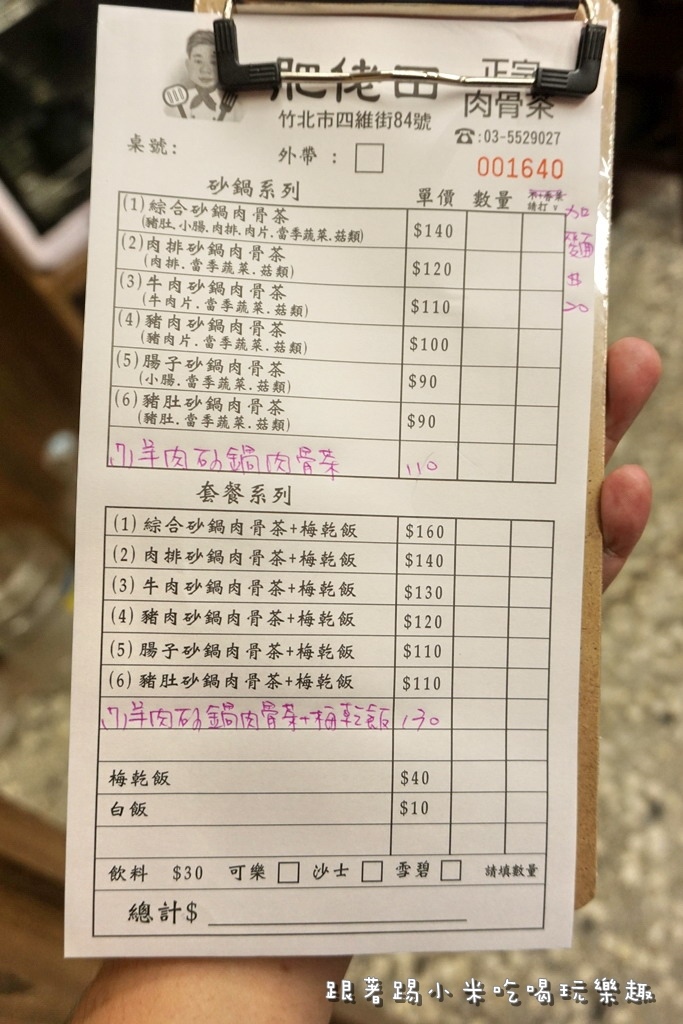 肥佬田 正宗
肉骨茶
竹北市四維街84號
☎:03-5529027
桌號: 外帶:
001640
砂鍋系列 單價 數量 請打 v
(1)綜合砂鍋肉骨茶 $140
(豬肚.小腸.肉排.肉片.當季蔬菜.菇類)
(2)肉排砂鍋肉骨茶 $120
(肉排.當季蔬菜.菇類)
(3)牛肉砂鍋肉骨茶 $110
(牛肉片.當季蔬菜.菇類)
(4)豬肉砂鍋肉骨茶 $100
(豬肉片.當季蔬菜.菇類)
(5)腸子砂鍋肉骨茶 $90
(小腸.當季蔬菜.菇類)
(6)豬肚砂鍋肉骨茶 $90
(豬肚.當季蔬菜.菇類)
(7)羊肉砂鍋肉骨茶 110
加
麵
$
20
套餐系列
(1)綜合砂鍋肉骨茶+梅乾飯 $160
(2)肉排砂鍋肉骨茶+梅乾飯 $140
(3)牛肉砂鍋肉骨茶+梅乾飯 $130
(4)豬肉砂鍋肉骨茶+梅乾飯 $120
(5)腸子砂鍋肉骨茶+梅乾飯 $110
(6)豬肚砂鍋肉骨茶+梅乾飯 $110
(7)羊肉砂鍋肉骨茶+梅乾飯 130
梅乾飯 $40
白飯 $10
飲料 $30 可樂 沙士 雪碧 請填數量
總計$
跟著踢小米吃喝玩樂趣